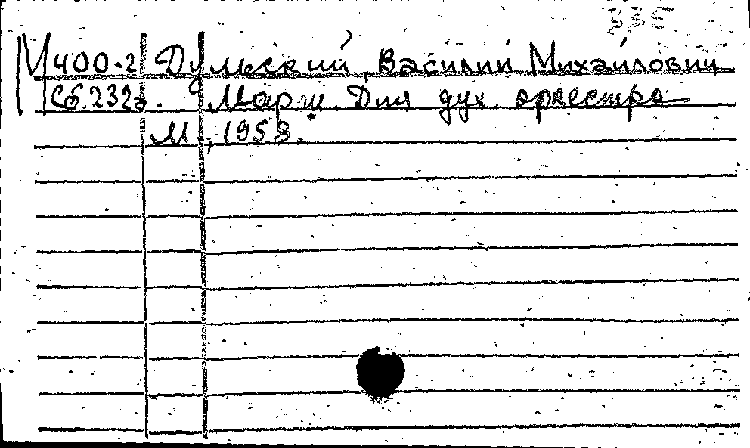 335
М400-2 Дульский, Василий Михайлович
Сб.232 Марш. Для дух. оркестра
М., 1958.